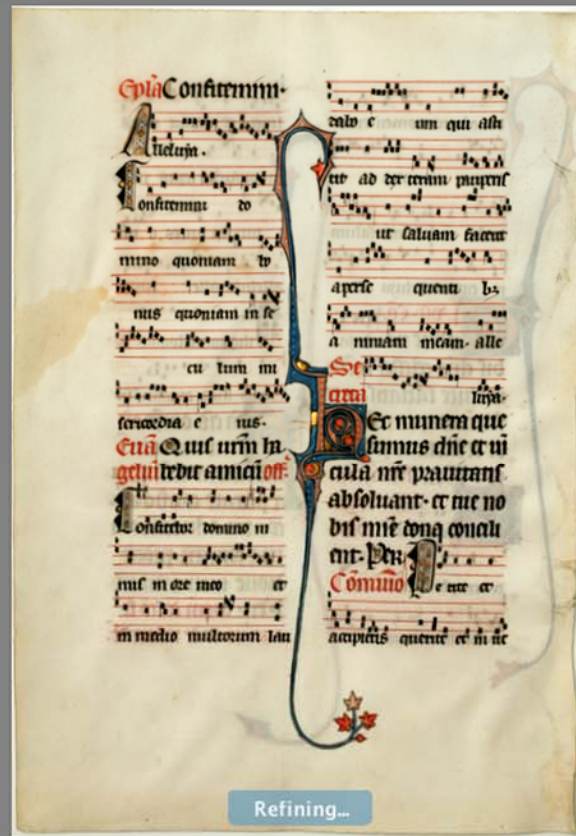 Ep̄la Confitemini·
Alleluya·
Confitemini do
mino quoniam bo
nus quoniam in se
cu lum mi
sericordia e ius·
Euā Quis urm̄ ha
geliū bebit amicū off̄·
Confitebor domino ni
mis in ore meo et
in medio multorum lau
dabo e um qui asti
tit ad dex teram pauperis
ut saluam faceret
a perse quentib;
a nimam meam· alle
Se luya·
creta
Hec munera que
sumus dn̄e et ui
cula nr̄e prauitatis
absoluant· et tue no
bis mīe dona concili
ent· Per
Cōmunio Petite et
accipietis querite et in ue
Refining...